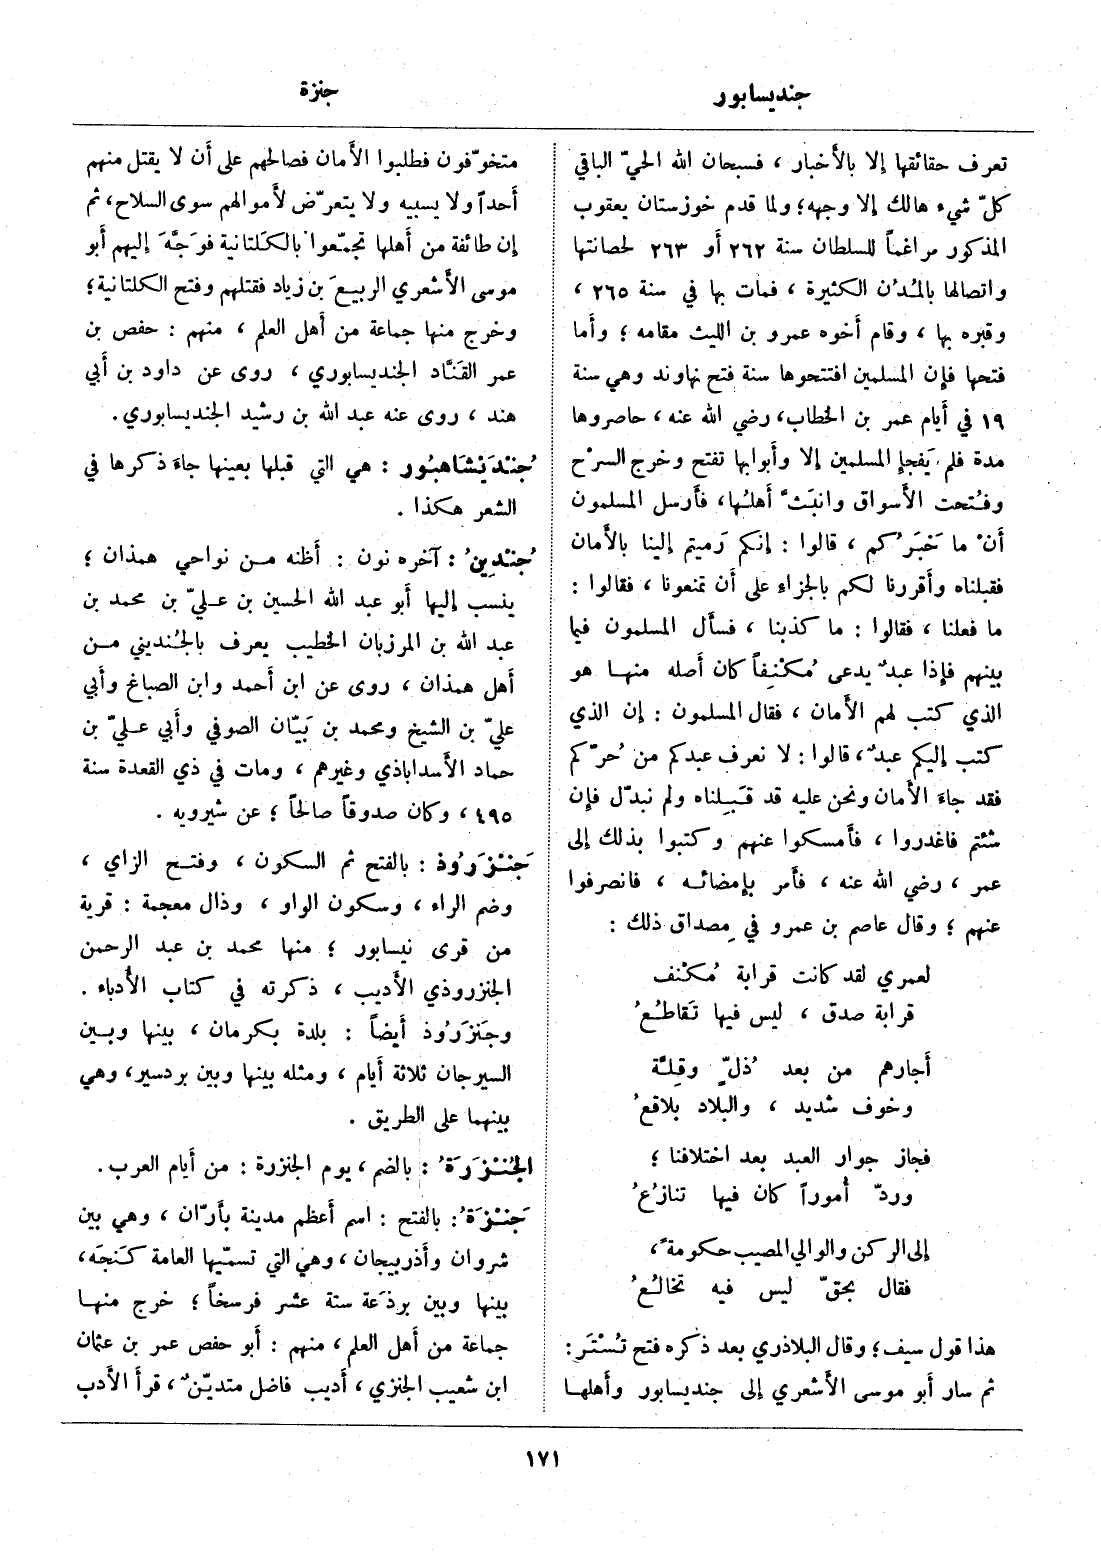 جنديسابور
جنزة
تعرف حقائقها إلا بالأخبار ، فسبحان الله الحيّ الباقي
كلّ شيء هالك إلا وجهه؛ ولما قدم خوزستان يعقوب
المذكور مراغماً للسلطان سنة ٢٦٢ أو ٢٦٣ لحصانتها
واتصالها بالمُدُن الكثيرة ، فمات بها في سنة ٢٦٥ ،
وقبره بها ، وقام أخوه عمرو بن الليث مقامه ؛ وأما
فتحها فإن المسلمين افتتحوها سنة فتح نهاوند وهي سنة
١٩ في أيام عمر بن الخطاب، رضي الله عنه ، حاصروها
مدة فلم يَفجإِ المسلمين إلا وأبوابها تفتح وخرج السرْح
وفُتحت الأسواق وانبَثَّ أهلُها، فأرسل المسلمون
أنْ ما خَبَرُكم ، قالوا : إنكم رَميتم إلينا بالأمان
فقبلناه وأقررنا لكم بالجزاء على أن تمنعونا ، فقالوا :
ما فعلنا ، فقالوا : ما كذبنا ، فسأل المسلمون فيما
بينهم فإذا عبدٌ يدعى مُكْنِفاً كان أصله منها هو
الذي كتب لهم الأمان ، فقال المسلمون : إن الذي
كتب إليكم عبدٌ، قالوا : لا نعرف عبدكم من حُرّكم
فقد جاءَ الأمان ونحن عليه قد قَبِلناه ولم نبدّل فإن
شئتم فاغدروا ، فأمسكوا عنهم وكتبوا بذلك إلى
عمر ، رضي الله عنه ، فأمر بإمضائه ، فانصرفوا
عنهم ؛ وقال عاصم بن عمرو في مِصداق ذلك :
لعمري لقد كانت قرابة مُكْنف
قرابة صدق ، ليس فيها تَقاطُعُ
أجارهم من بعد ذُلّ وقلّة
وخوف شديد ، والبلاد بلاقعُ
فجاز جوار العبد بعد اختلافنا ؛
وردّ أموراً كان فيها تنازُعُ
إلى الركن والوالي المصيب حكومةً،
فقال بحقّ ليس فيه تخالُعُ
هذا قول سيف؛ وقال البلاذري بعد ذكره فتح تُسْتَر :
ثم سار أبو موسى الأشعري إلى جنديسابور وأهلها
متخوّفون فطلبوا الأمان فصالحهم على أن لا يقتل منهم
أحداً ولا يسبيه ولا يتعرّض لأموالهم سوى السلاح، ثم
إن طائفة من أهلها تجمّعوا بالكَلتانية فوَجَّهَ إليهم أبو
موسى الأشعري الربيعَ بن زياد فقتلهم وفتح الكلتانية؛
وخرج منها جماعة من أهل العلم ، منهم : حفص بن
عمر القَنَّاد الجنديسابوري ، روى عن داود بن أبي
هند ، روى عنه عبد الله بن رشيد الجنديسابوري.
جُنْدَيْشَاهبُور : هي التي قبلها بعينها جاءَ ذكرها في
الشعر هكذا .
جُنْدِينُ : آخره نون : أظنه من نواحي همذان ؛
ينسب إليها أبو عبد الله الحسين بن عليّ بن محمد بن
عبد الله بن المرزبان الخطيب يعرف بالجُنديني من
أهل همذان ، روى عن ابن أحمد وابن الصباغ وأبي
عليّ بن الشيخ ومحمد بن بَيّان الصوفي وأبي عليّ بن
حماد الأسداباذي وغيرهم ، ومات في ذي القعدة سنة
٤٩٥ ، وكان صدوقاً صالحاً ؛ عن شيرويه .
جَنْزَرُوذ : بالفتح ثم السكون ، وفتح الزاي ،
وضم الراء ، وسكون الواو ، وذال معجمة : قرية
من قرى نيسابور ؛ منها محمد بن عبد الرحمن
الجنزروذي الأديب ، ذكرته في كتاب الأدباء .
وجَنزَرُوذ أيضاً : بلدة بكرمان ، بينها وبين
السيرجان ثلاثة أيام ، ومثله بينها وبين بردسير، وهي
بينهما على الطريق .
الجُنْزَرَةُ : بالضم ، يوم الجنزرة : من أيام العرب.
جَنْزَةُ : بالفتح : اسم أعظم مدينة بأرّان ، وهي بين
شروان وأذربيجان ، وهي التي تسمّيها العامة كَنجَه،
بينها وبين برذَعة ستة عشر فرسخاً ؛ خرج منها
جماعة من أهل العلم، منهم : أبو حفص عمر بن عثمان
ابن شعيب الجنزي ، أديب فاضل متديّنٌ، قرأ الأدب
١٧١